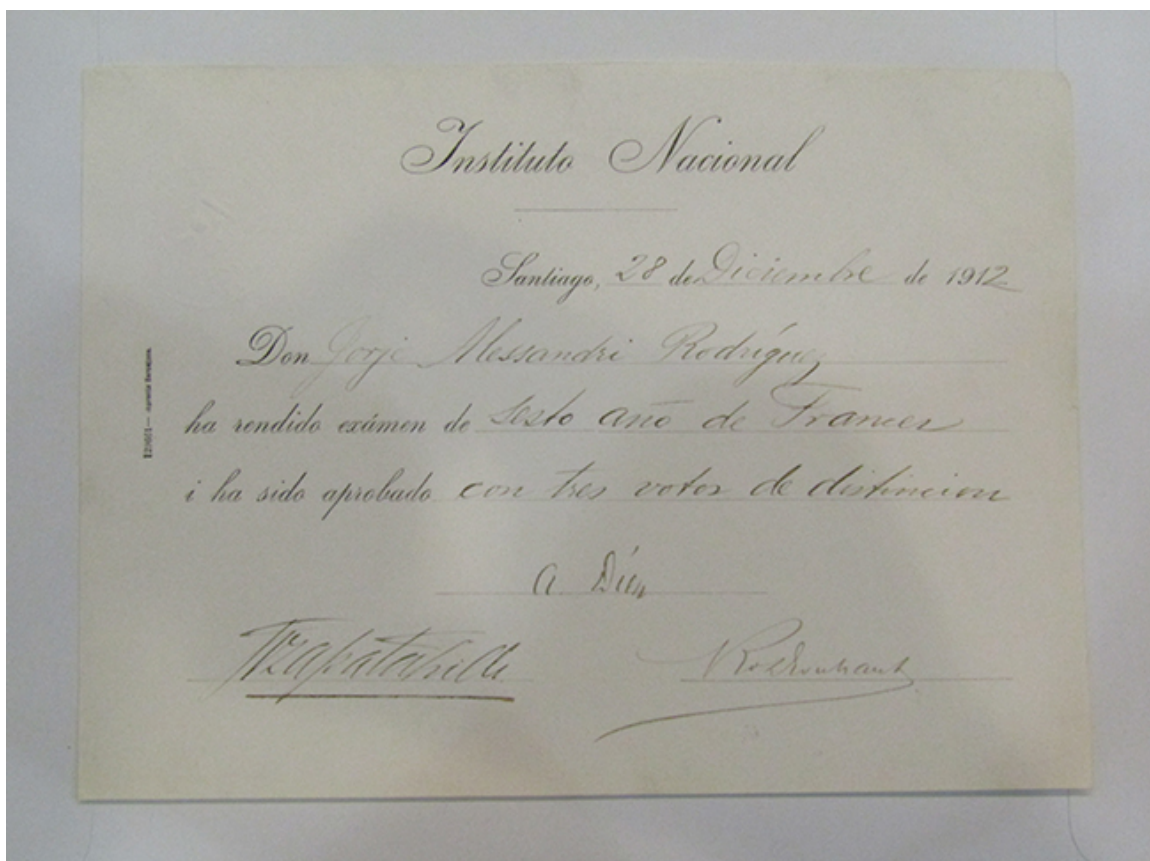 Instituto Nacional
Santiago, 28 de Diciembre de 1912
Don Jorje Alessandri Rodríguez
ha rendido exámen de Sesto año de Frances
i ha sido aprobado con tres votos de distincion
A. Díaz